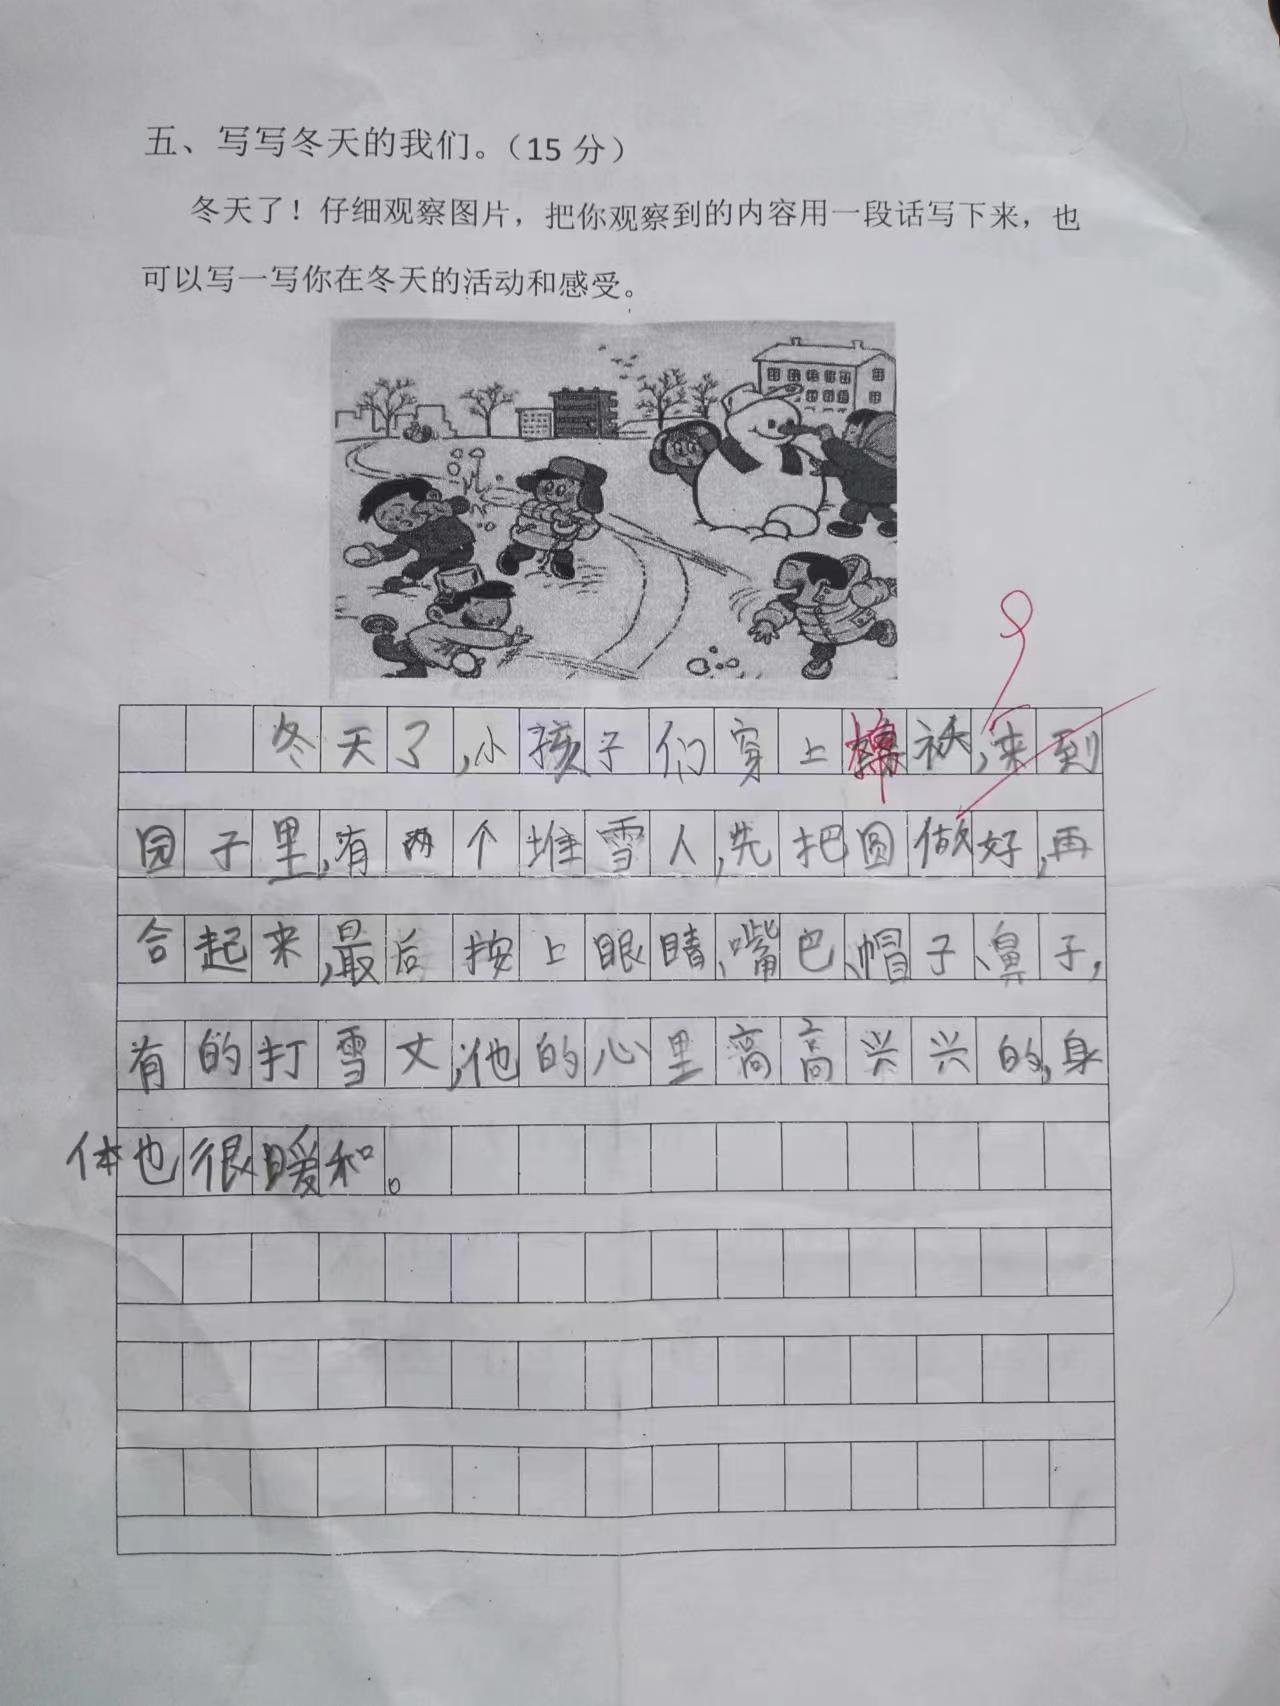 五、写写冬天的我们。（15 分）
冬天了！仔细观察图片，把你观察到的内容用一段话写下来，也
可以写一写你在冬天的活动和感受。
冬天了,小孩子们穿上棉袄,来到
园子里,有两个堆雪人,先把圆做好,再
合起来,最后按上眼睛、嘴巴、帽子、鼻子,
有的打雪丈,他的心里高高兴兴的,身
体也很暖和。